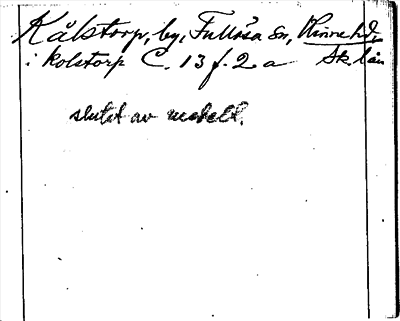 Kålstorp, by, Fullösa sn, Kinne hd,
i kolstorp C. 13 f. 2 a Sk. län
slutet av medelt.